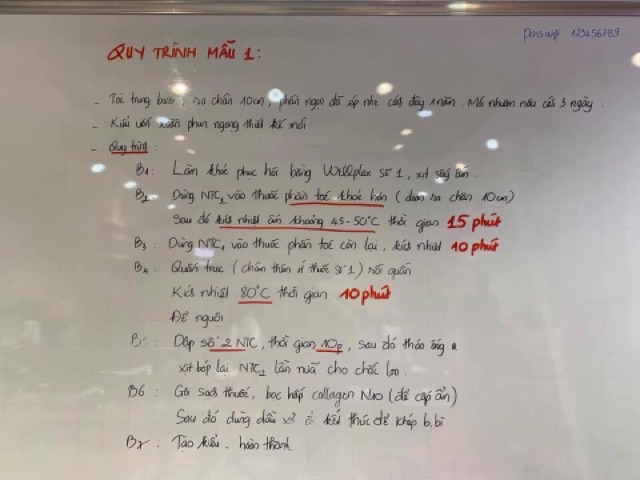 Pass wifi 123456789
QUY TRÌNH MẪU 1:
- Tóc trung bình, ra chân 10cm, phần ngọn đã ép nhẹ cách đây 1 năm. Mới nhuộm nâu cách 3 ngày.
- Kiểu uốn xoăn phun ngang thiết kế mới
- Quy trình:
B1: Làm khoẻ phục hồi bằng Welliplex số 1, xịt sấy ẩm.
B2: Dùng NTC1 vào thuốc phần tóc khoẻ hơn (đoạn ra chân 10cm)
Sau đó kích nhiệt ẩm khoảng 45-50°C thời gian 15 phút
B3: Dùng NTC1 vào thuốc phần tóc còn lại, kích nhiệt 10 phút
B4: Quấn trục (chấm thêm tí thuốc số 1) rồi quấn
Kích nhiệt 80°C thời gian 10 phút
Để nguội
B5: Dập số 2 NTC, thời gian 10p, sau đó tháo ống ra
xịt bóp lại NTC2 lần nữa cho chắc lọn.
B6: Gội sạch thuốc, bọc hấp collagen Nno (để cấp ẩm)
Sau đó dùng dầu xả kết thúc để khép b.bì
B7: Tạo kiểu. hoàn thành